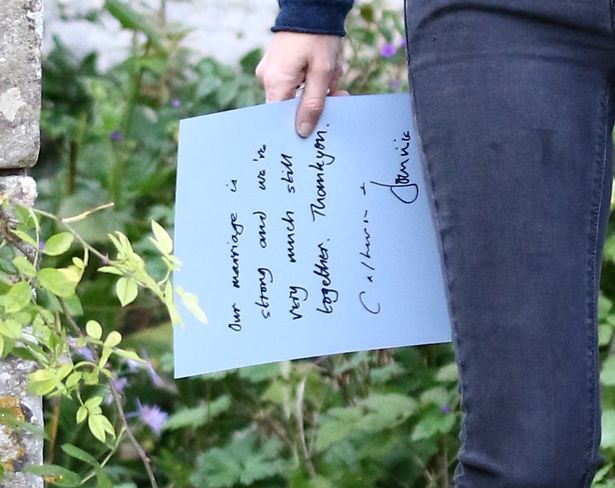 Our marriage is
strong and we're
very much still
together. Thankyou.
Catherine +
Dominic